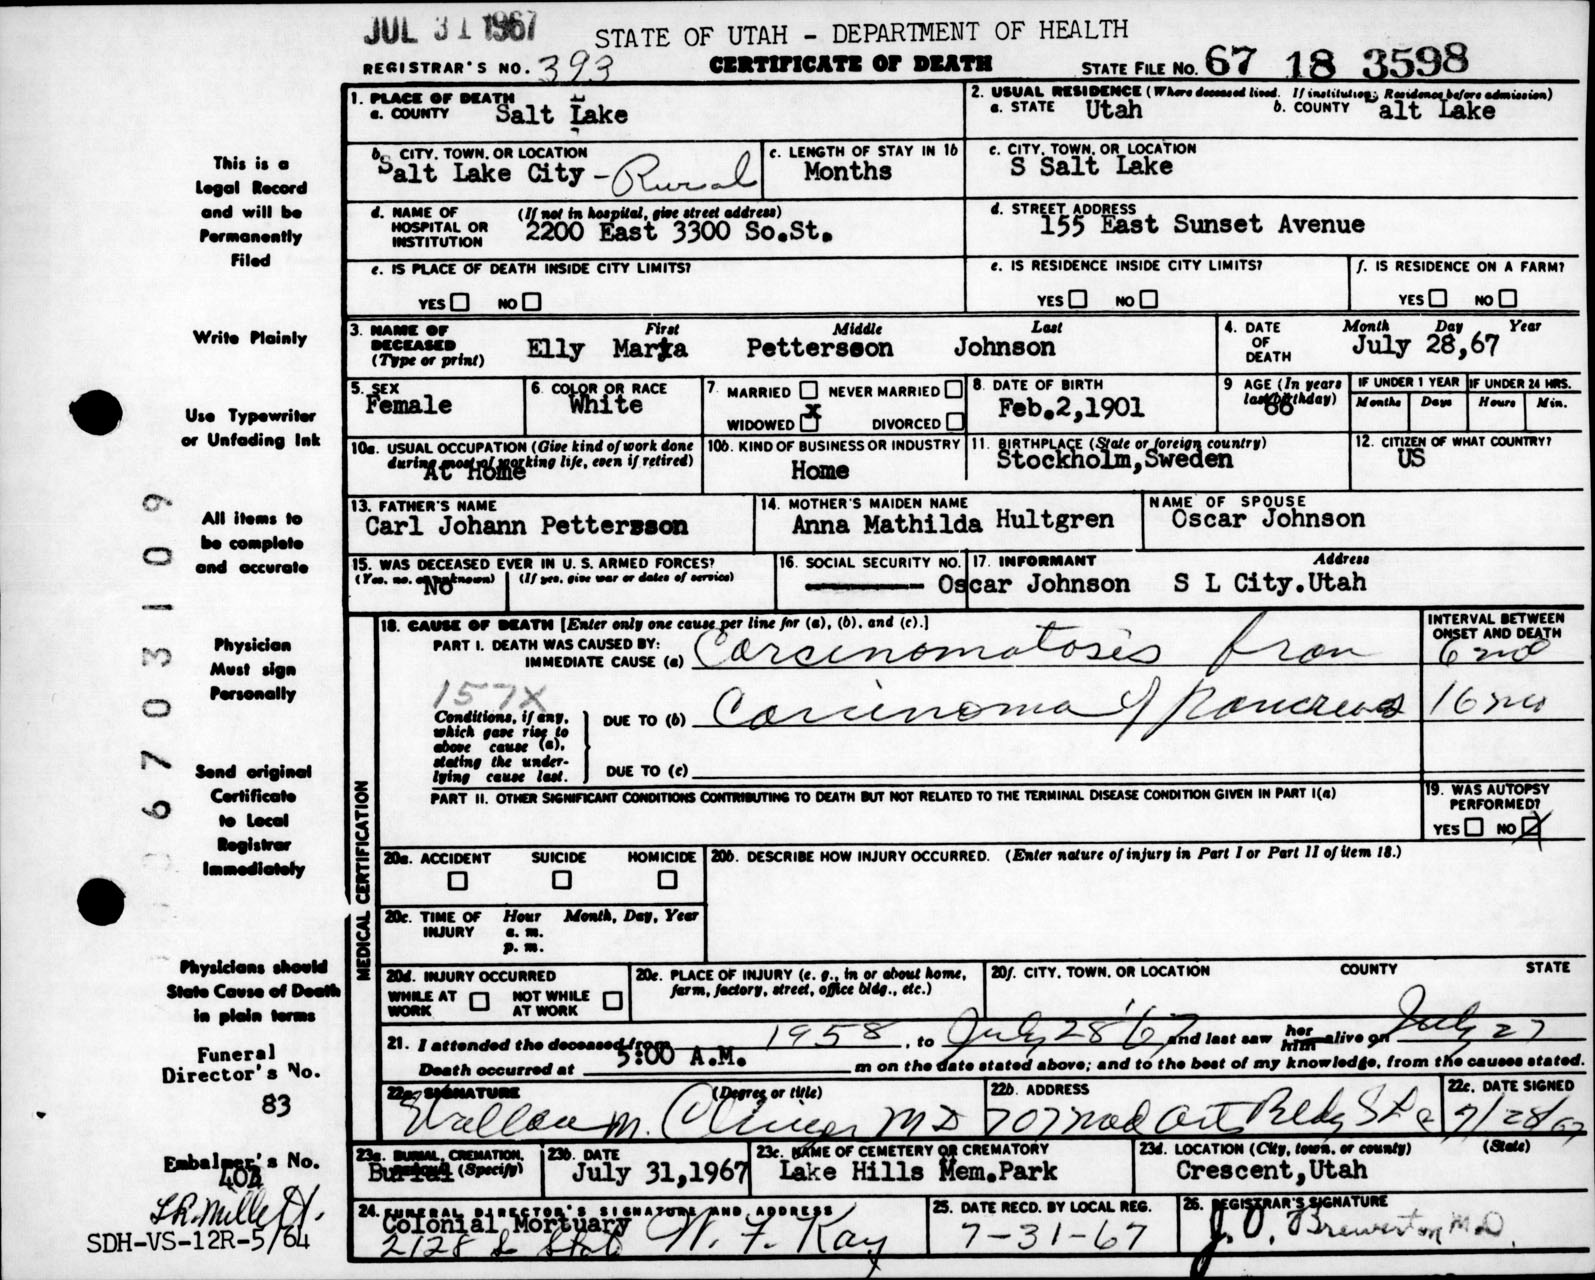 JUL 31 1967
STATE OF UTAH - DEPARTMENT OF HEALTH
REGISTRAR'S NO. 393 CERTIFICATE OF DEATH STATE FILE NO. 67 18 3598
This is a
Legal Record
and will be
Permanently
Filed
Write Plainly
Use Typewriter
or Unfading Ink
All items to
be complete
and accurate
Physician
Must sign
Personally
Send original
Certificate
to Local
Registrar
Immediately
Physicians should
State Cause of Death
in plain terms
Funeral
Director's No.
83
Embalmer's No.
SDH-VS-12R-5/64
6703109
1. PLACE OF DEATH
a. COUNTY Salt Lake
2. USUAL RESIDENCE (Where deceased lived. If institution; Residence before admission)
a. STATE Utah b. COUNTY alt Lake
b. CITY, TOWN, OR LOCATION
Salt Lake City - Rural
c. LENGTH OF STAY IN 1b
Months
c. CITY, TOWN, OR LOCATION
S Salt Lake
d. NAME OF HOSPITAL OR INSTITUTION (If not in hospital, give street address)
2200 East 3300 So.St.
d. STREET ADDRESS
155 East Sunset Avenue
e. IS PLACE OF DEATH INSIDE CITY LIMITS?
YES NO
e. IS RESIDENCE INSIDE CITY LIMITS?
YES NO
f. IS RESIDENCE ON A FARM?
YES NO
3. NAME OF DECEASED (Type or print) First Middle Last
Elly Marta Pettersson Johnson
4. DATE OF DEATH Month Day Year
July 28,67
5. SEX
Female
6. COLOR OR RACE
White
7. MARRIED NEVER MARRIED
WIDOWED X DIVORCED
8. DATE OF BIRTH
Feb.2,1901
9 AGE (In years last birthday)
66
IF UNDER 1 YEAR IF UNDER 24 HRS.
Months Days Hours Min.
10a. USUAL OCCUPATION (Give kind of work done during most of working life, even if retired)
At Home
10b. KIND OF BUSINESS OR INDUSTRY
Home
11. BIRTHPLACE (State or foreign country)
Stockholm,Sweden
12. CITIZEN OF WHAT COUNTRY?
US
13. FATHER'S NAME
Carl Johann Pettersson
14. MOTHER'S MAIDEN NAME
Anna Mathilda Hultgren
NAME OF SPOUSE
Oscar Johnson
15. WAS DECEASED EVER IN U. S. ARMED FORCES?
(Yes, no, or unknown) (If yes, give war or dates of service)
No
16. SOCIAL SECURITY NO.
17. INFORMANT Address
Oscar Johnson S L City.Utah
MEDICAL CERTIFICATION
18. CAUSE OF DEATH [Enter only one cause per line for (a), (b), and (c).]
INTERVAL BETWEEN ONSET AND DEATH
PART I. DEATH WAS CAUSED BY:
IMMEDIATE CAUSE (a) Carcinomatosis from 6 mo
157X
Conditions, if any, which gave rise to above cause (a), stating the underlying cause last.
DUE TO (b) Carcinoma of Pancreas 16 mo
DUE TO (c)
PART II. OTHER SIGNIFICANT CONDITIONS CONTRIBUTING TO DEATH BUT NOT RELATED TO THE TERMINAL DISEASE CONDITION GIVEN IN PART I(a)
19. WAS AUTOPSY PERFORMED?
YES NO X
20a. ACCIDENT SUICIDE HOMICIDE
20b. DESCRIBE HOW INJURY OCCURRED. (Enter nature of injury in Part I or Part II of item 18.)
20c. TIME OF INJURY Hour Month, Day, Year
a. m.
p. m.
20d. INJURY OCCURRED
WHILE AT WORK NOT WHILE AT WORK
20e. PLACE OF INJURY (e. g., in or about home, farm, factory, street, office bldg., etc.)
20f. CITY, TOWN, OR LOCATION COUNTY STATE
21. I attended the deceased from 1958, to July 28 '67 and last saw her him alive on July 27
Death occurred at 5:00 A.M. m on the date stated above; and to the best of my knowledge, from the causes stated.
22a. SIGNATURE (Degree or title)
M. MD
22b. ADDRESS
707 Med Arts Bldg
22c. DATE SIGNED
7/28/67
23a. BURIAL, CREMATION, (Specify)
Burial
23b. DATE
July 31,1967
23c. NAME OF CEMETERY OR CREMATORY
Lake Hills Mem.Park
23d. LOCATION (City, town, or county) (State)
Crescent,Utah
24. FUNERAL DIRECTOR'S SIGNATURE AND ADDRESS
Colonial Mortuary W. F. Kay
2128 So State
25. DATE RECD. BY LOCAL REG.
7-31-67
26. REGISTRAR'S SIGNATURE
J. O. Brewerton M.D.